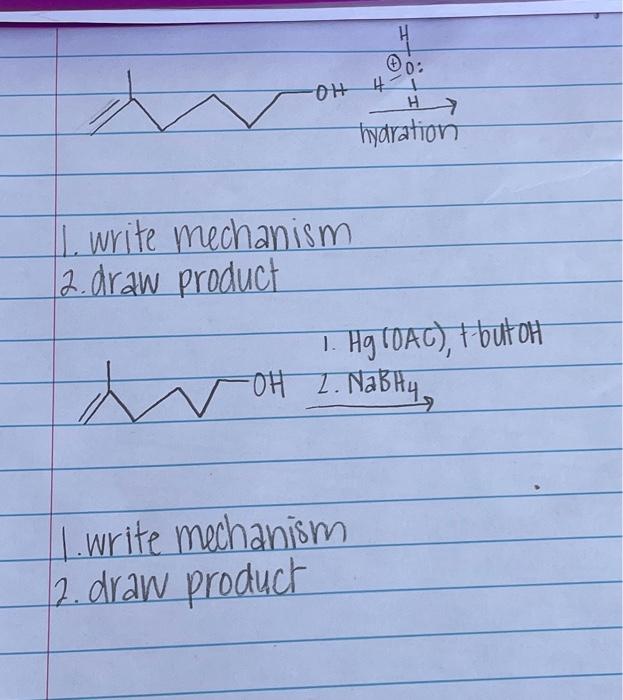 H
⊕ O:
OH H H
hydration
1. write mechanism
2. draw product
1. Hg(OAC), t-butOH
OH 2. NaBH4
1. write mechanism
2. draw product